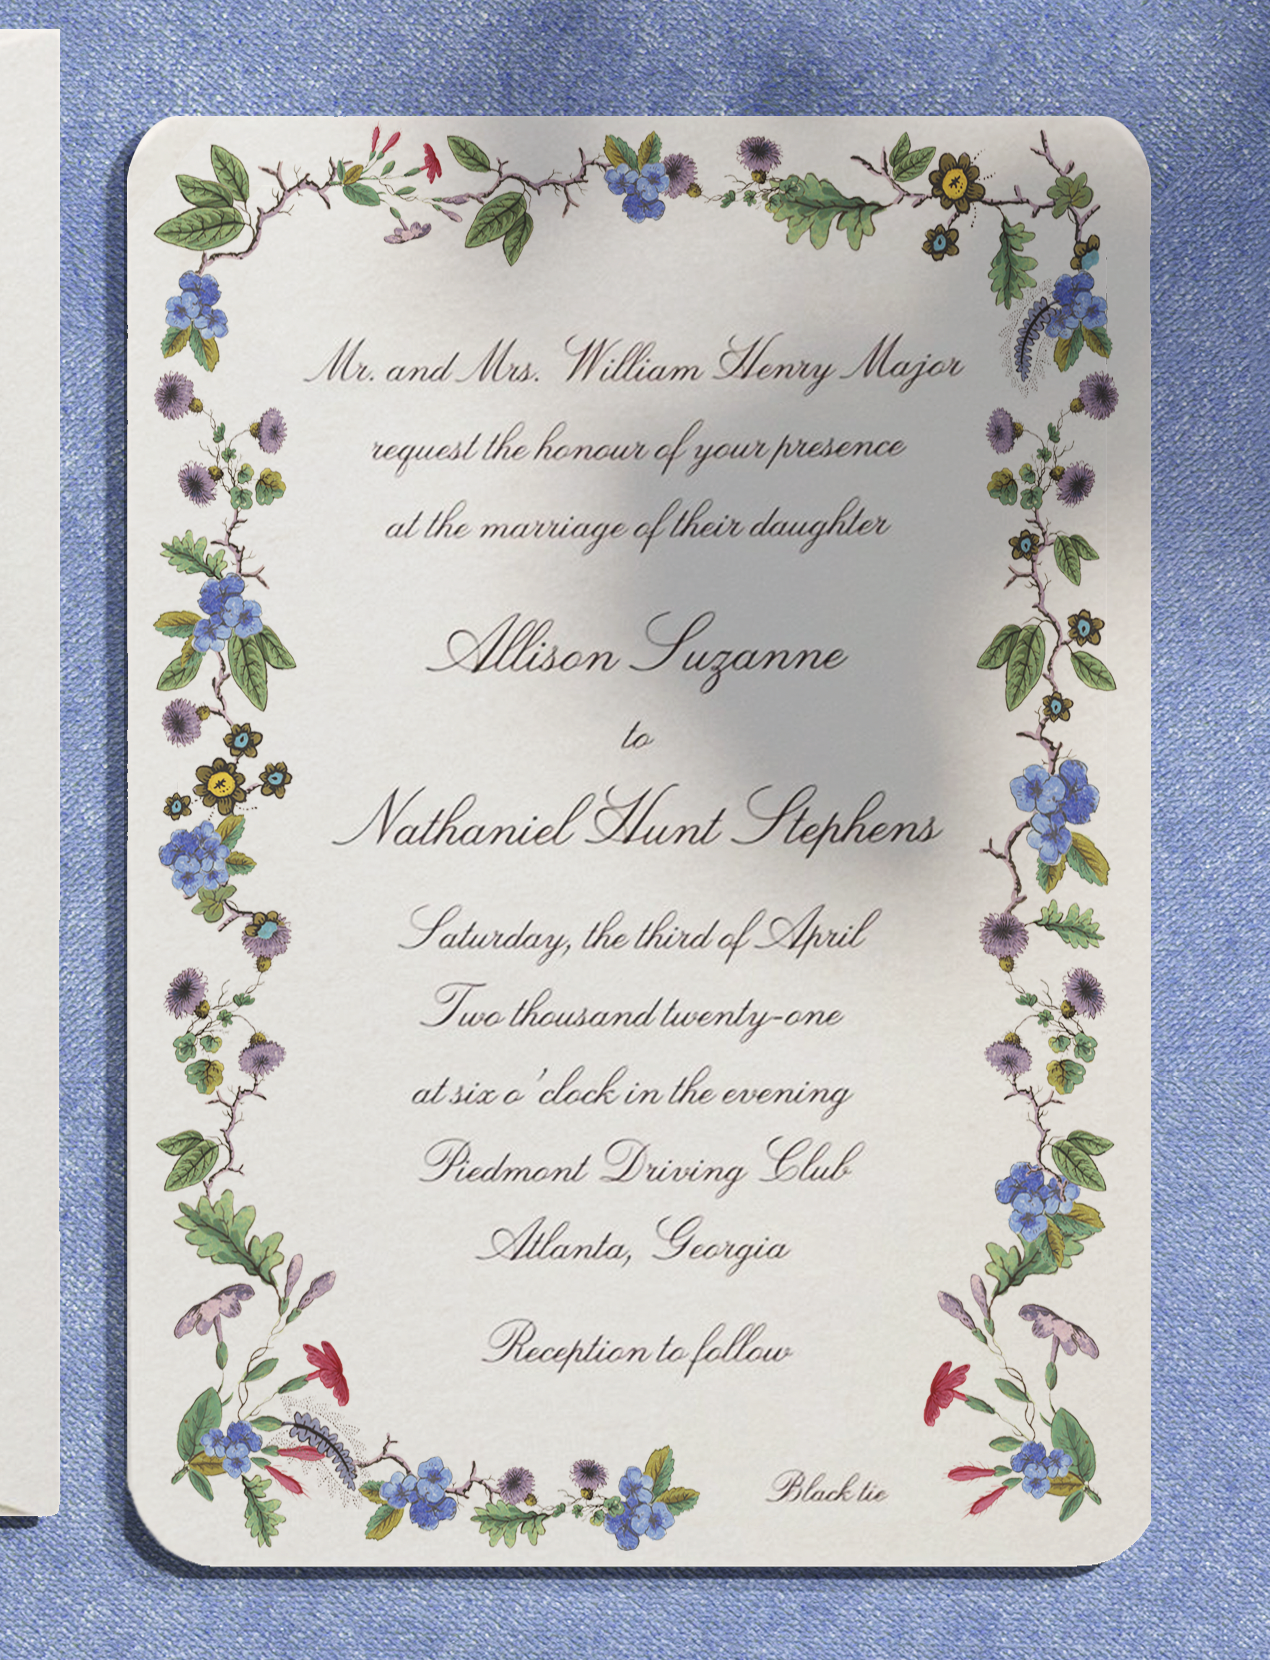 Mr. and Mrs. William Henry Major
request the honour of your presence
at the marriage of their daughter
Allison Suzanne
to
Nathaniel Hunt Stephens
Saturday, the third of April
Two thousand twenty-one
at six o'clock in the evening
Piedmont Driving Club
Atlanta, Georgia
Reception to follow
Black tie